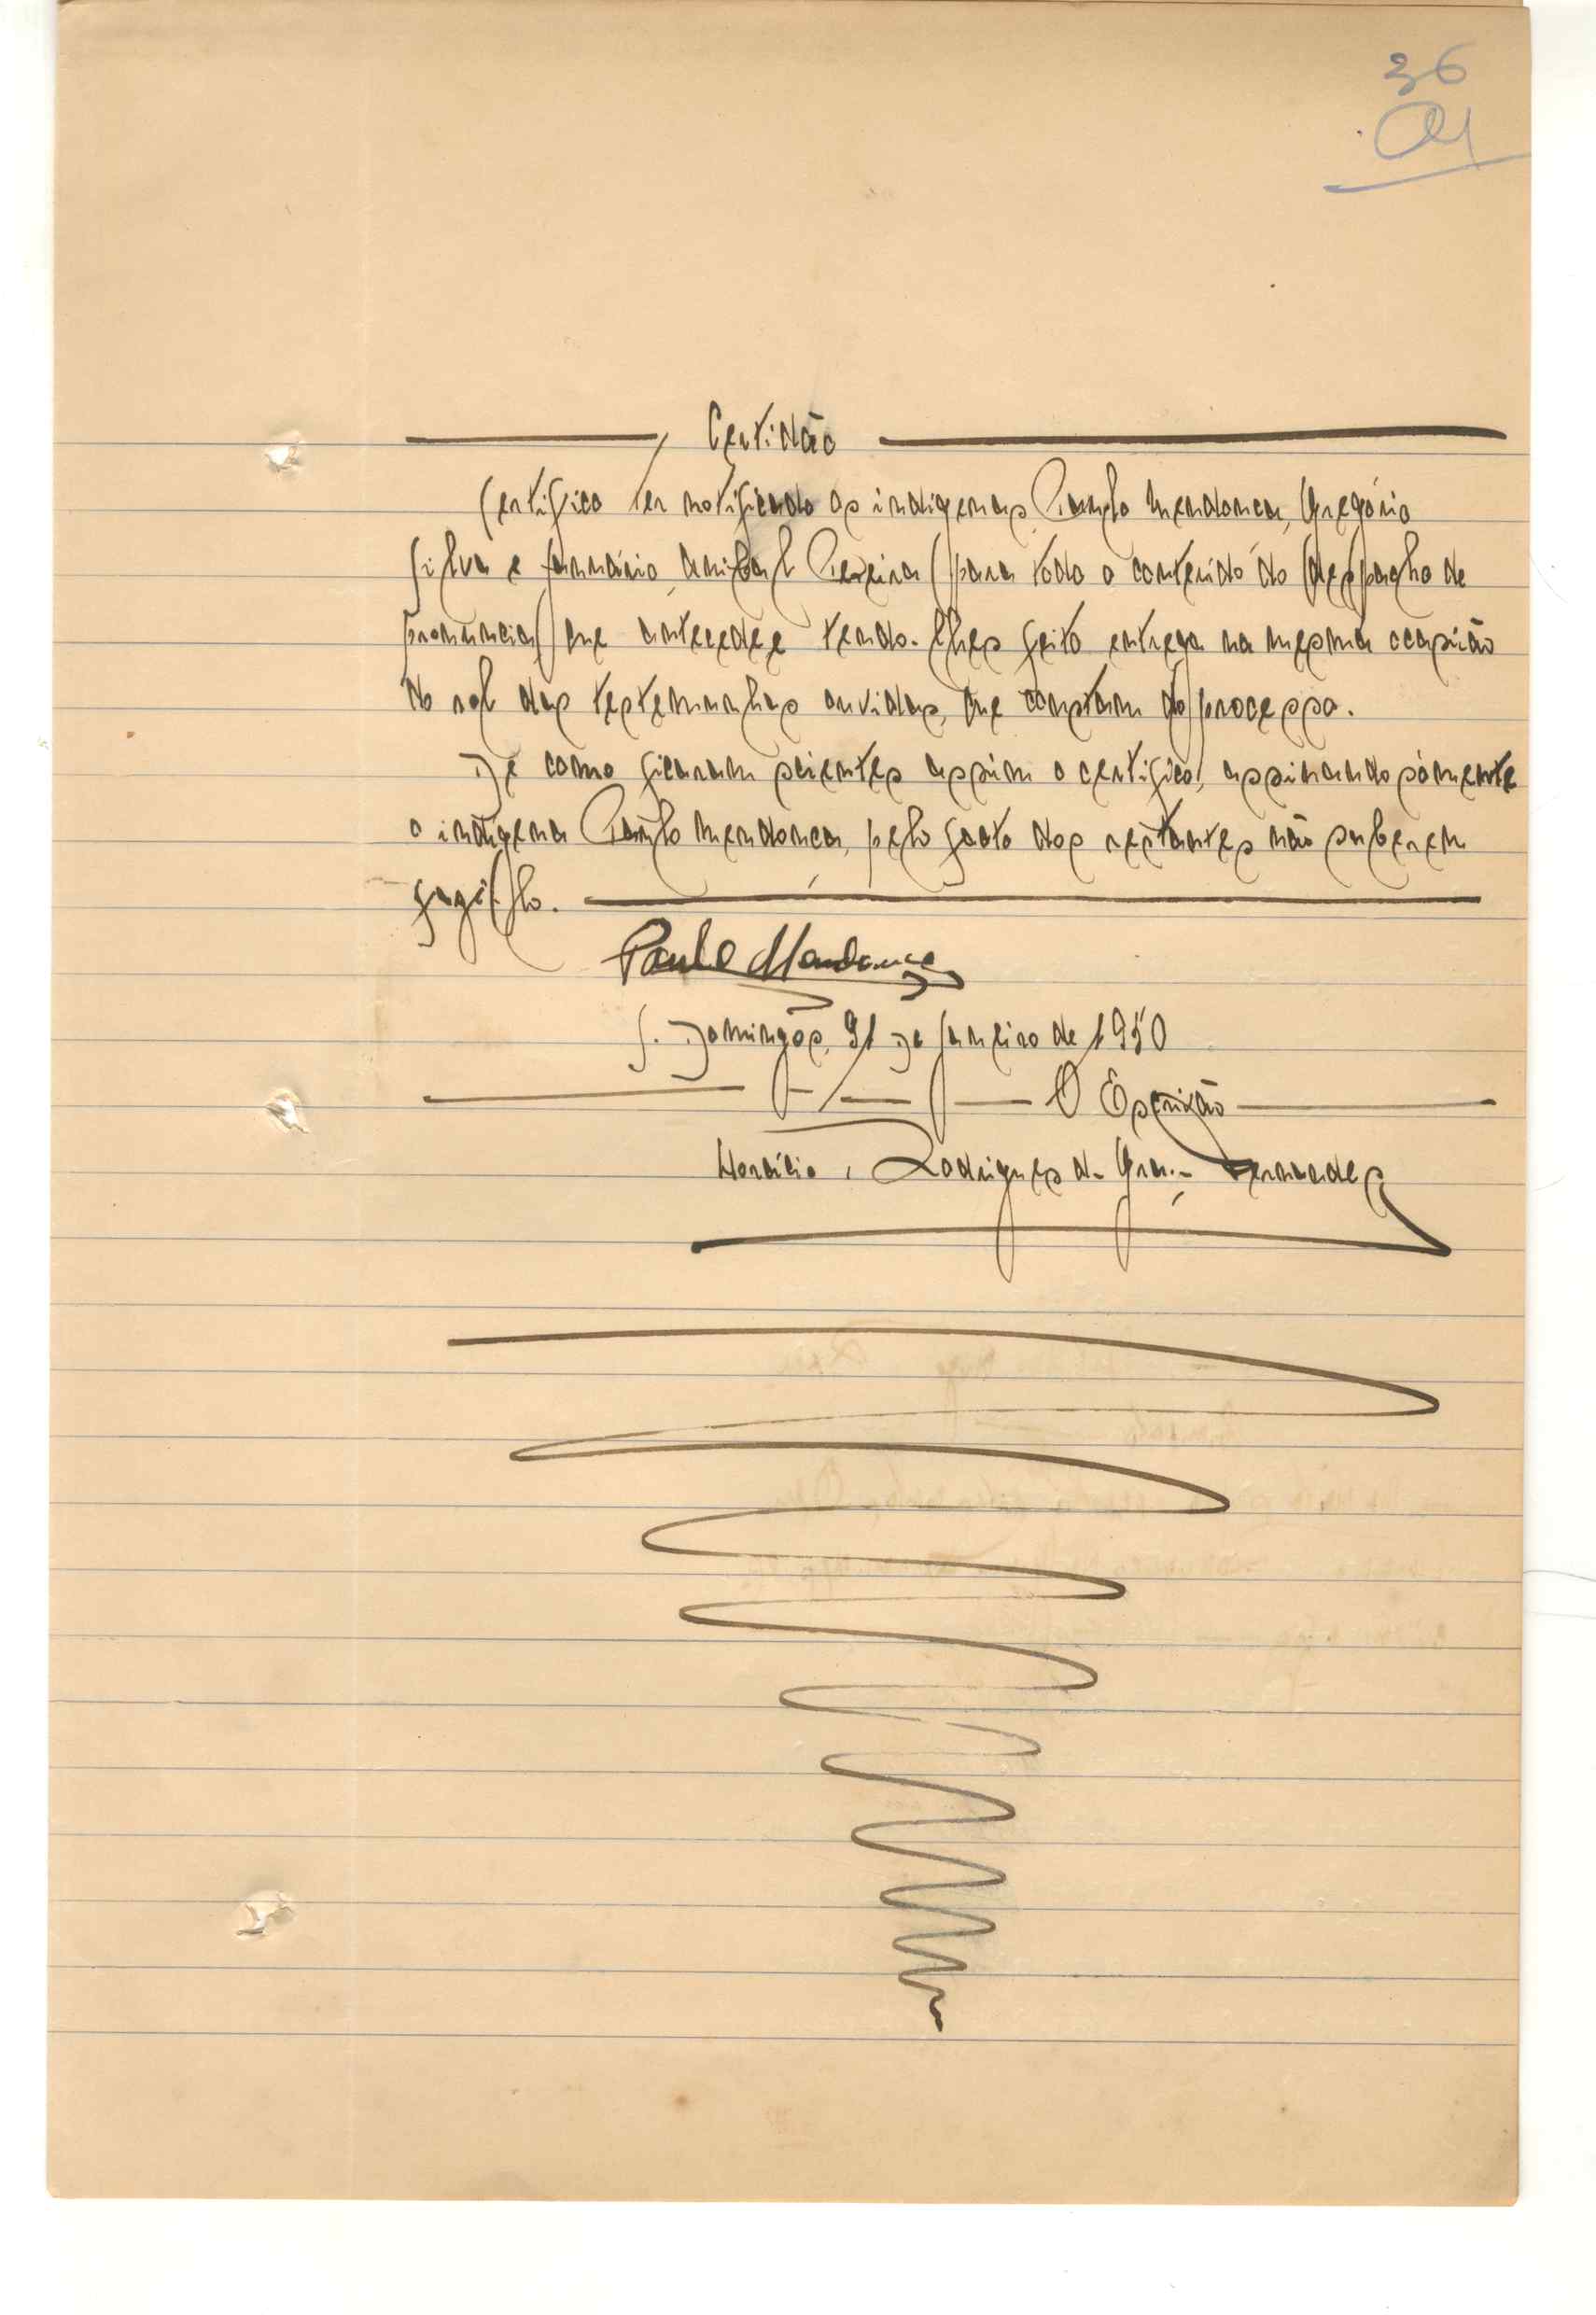 36
Certidão
Certifico ter notificado os indigenas, Paulo Mendonça, Gregório
Silva e Januário Anibal Pereira para todo o conteúdo do despacho de
pronuncia que antecede e tendo-lhes feito entrega na mesma ocasião
do rol das testemunhas ouvidas, que constam do processo.
De como ficaram scientes assim o certifico, assinando sómente
o indigena Paulo Mendonça, pelo facto dos restantes não saberem
fazê-lo.
Paulo Mendonça
S. Domingos, 31 de Janeiro de 1950
O Escrivão
Horácio Rodrigues da Fernandes